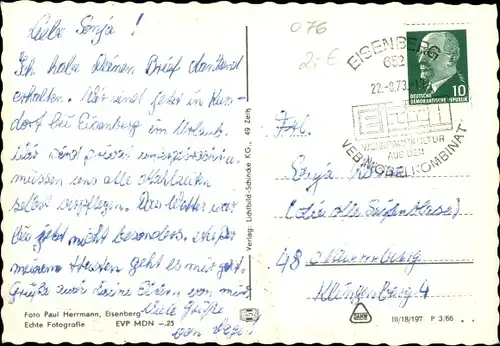 Liebe Sonja!
Ich habe Deinen Brief dankend
erhalten. Wir sind jetzt in
dorf bei Eisenberg im Urlaub.
Wir sind privat
müssen uns alle Mahlzeiten
selbst verpflegen. Das Wetter war
bis jetzt nicht besonders. Außer
meinem Husten geht es mir gut.
Grüße auch Deine Eltern von mir
Viele Grüße
von
Foto Paul Herrmann, Eisenberg
Echte Fotografie EVP MDN –.25
Verlag: Lichtbild-Schincke KG., 49 Zeitz
076
2,-€
EISENBERG
652
22.-8.73
WOHNRAUMKULTUR
AUS DEM
VEB MÖBELKOMBINAT
10
DEUTSCHE
DEMOKRATISCHE REPUBLIK
Frl.
Sonja
48 Naumburg
4
III/18/197 P 3/66